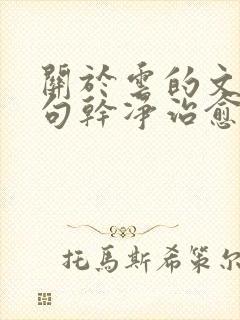 關於雲的文
句幹淨治愈
托馬斯希策尔